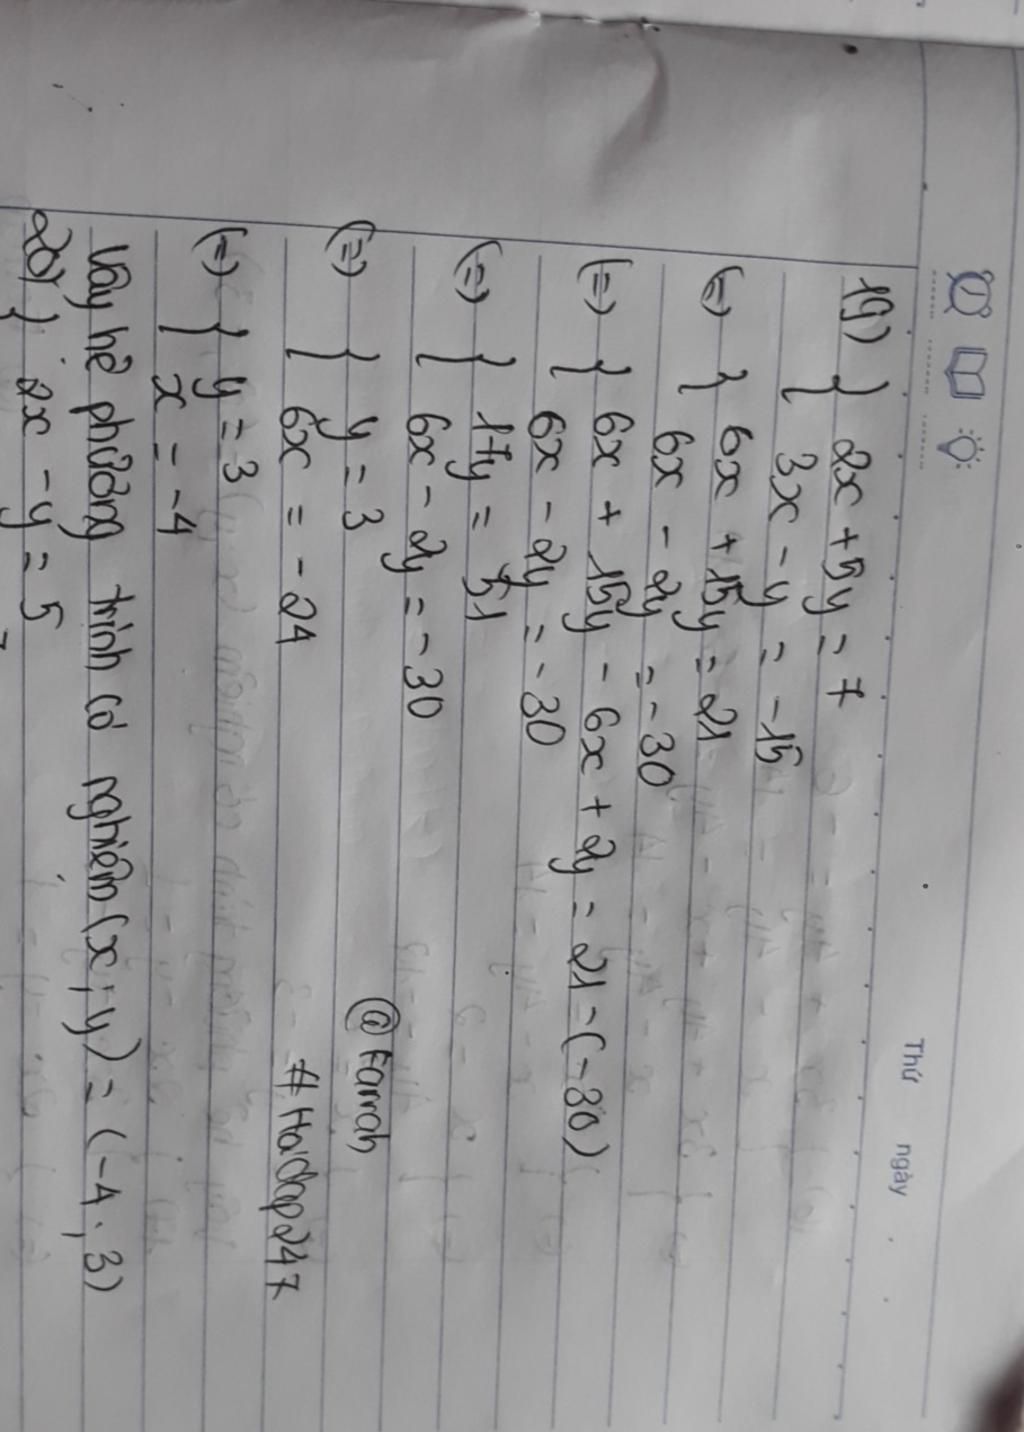 Thứ ngày
19) { 2x + 5y = 7
{ 3x - y = -15
(=) { 6x + 15y = 21
6x - 2y = -30
(=) { 6x + 15y - 6x + 2y = 21 - (-30)
6x - 2y = -30
(=) { 17y = 51
{ 6x - 2y = -30
(=) { y = 3 @Farrah
{ 6x = -24 #Hoidap247
(=) { y = 3
{ x = -4
Vậy hệ phương trình có nghiệm (x; y) = (-4; 3)
20) { 2x - y = 5